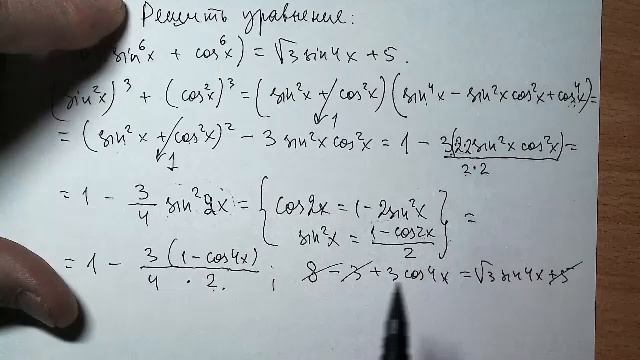 Решить уравнение:
sin⁶x + cos⁶x) = √3 sin4x + 5.
(sin²x)³ + (cos²x)³ = (sin²x + cos²x)(sin⁴x − sin²x cos²x + cos⁴x) =
1
= (sin²x + cos²x)² − 3 sin²x cos²x = 1 − 3(2·2 sin²x cos²x) =
1 2·2
= 1 − 3/4 sin²2x = { cos2x = 1 − 2sin²x
sin²x = (1 − cos2x)/2 } =
= 1 − 3(1 − cos4x)/(4 · 2) ; 8 − 3 + 3cos4x = √3 sin4x + 5